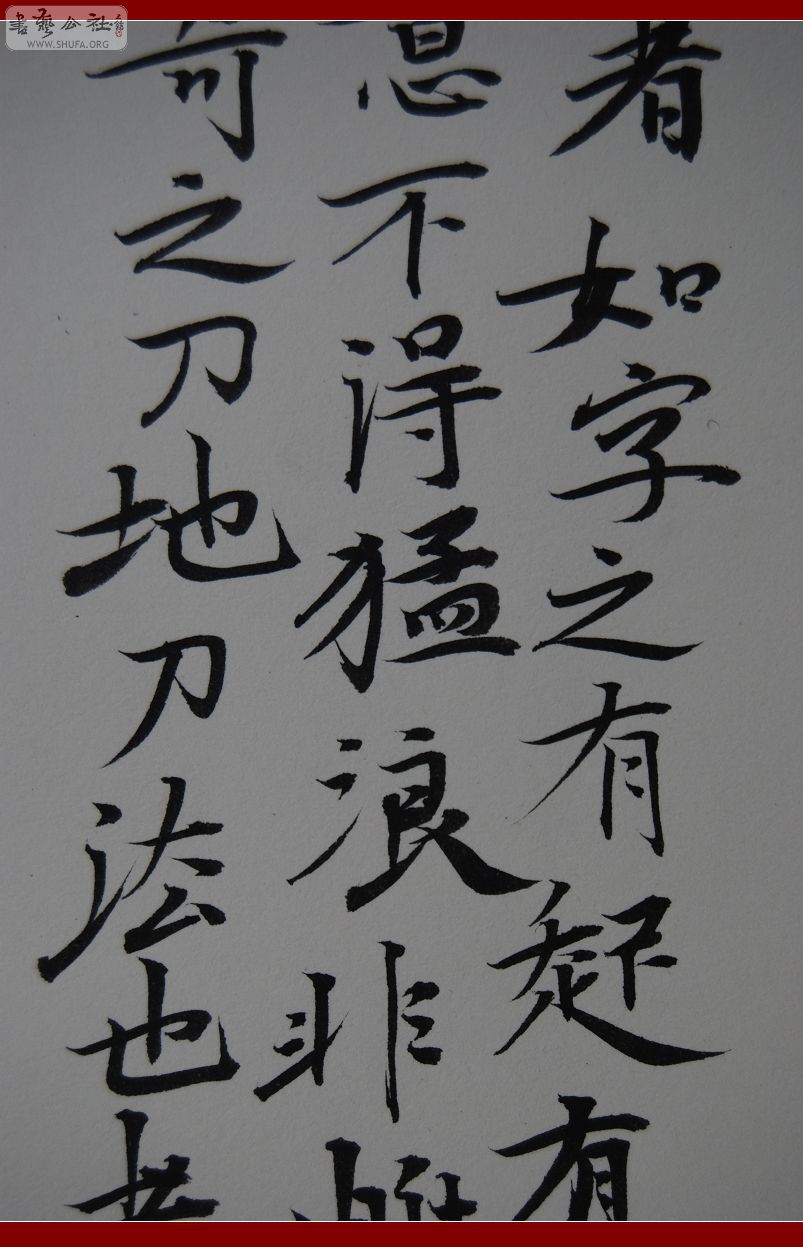 書藝公社
WWW.SHUFA.ORG
者如字之有起有
不得猛浪非
之刀地刀法也